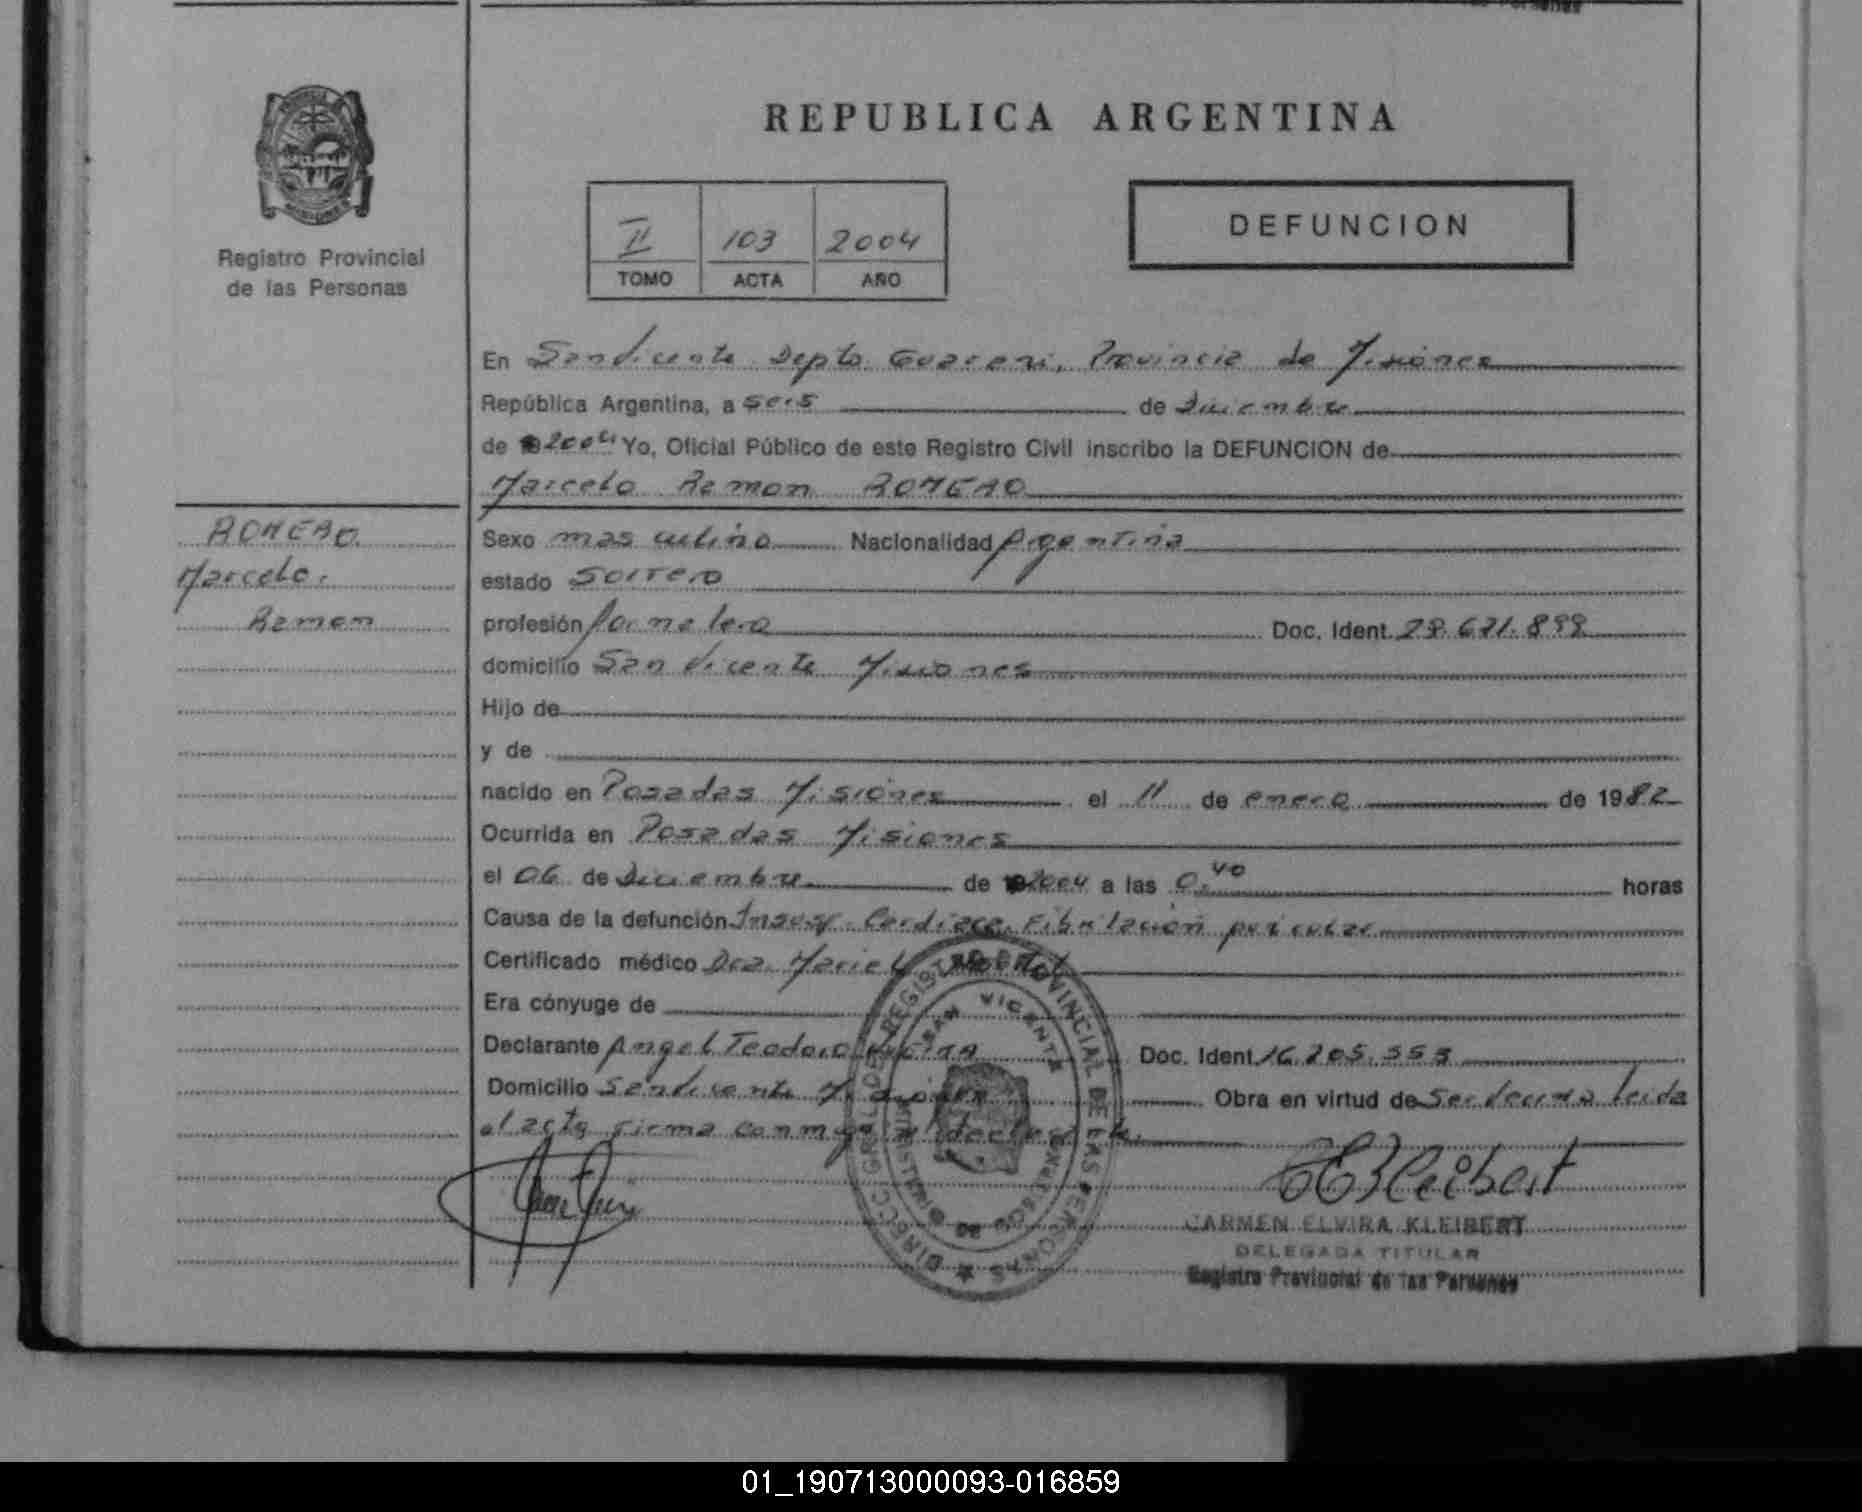 REPUBLICA ARGENTINA
Registro Provincial
de las Personas
II 103 2004
TOMO ACTA AÑO
DEFUNCION
En San Vicente Depto Guarani, Provincia de Misiones
República Argentina, a seis de Diciembre
de 2004 Yo, Oficial Público de este Registro Civil inscribo la DEFUNCION de
Marcelo Ramon ROMERO
ROMERO
Marcelo
Ramon
Sexo masculino Nacionalidad Argentina
estado Soltero
profesión Jornalero Doc. Ident.
domicilio San Vicente Misiones
Hijo de
y de
nacido en Posadas Misiones el 11 de enero de 1982
Ocurrida en Posadas Misiones
el 06 de Diciembre de 2004 a las 0,40 horas
Causa de la defunción Insuf. Cardiaca, Fibrilación
Certificado médico Dra. Mariel
Era cónyuge de
Declarante Angel Teodoro Doc. Ident. 16.205.553
Domicilio San Vicente Misiones Obra en virtud de Ser leida
el acta firma conmigo el declarante.
DIRECC. GRAL. DEL REGISTRO PROVINCIAL DE LAS PERSONAS
SAN VICENTE
CARMEN ELVIRA KLEIBERT
DELEGADA TITULAR
Registro Provincial de las Personas
01_190713000093-016859